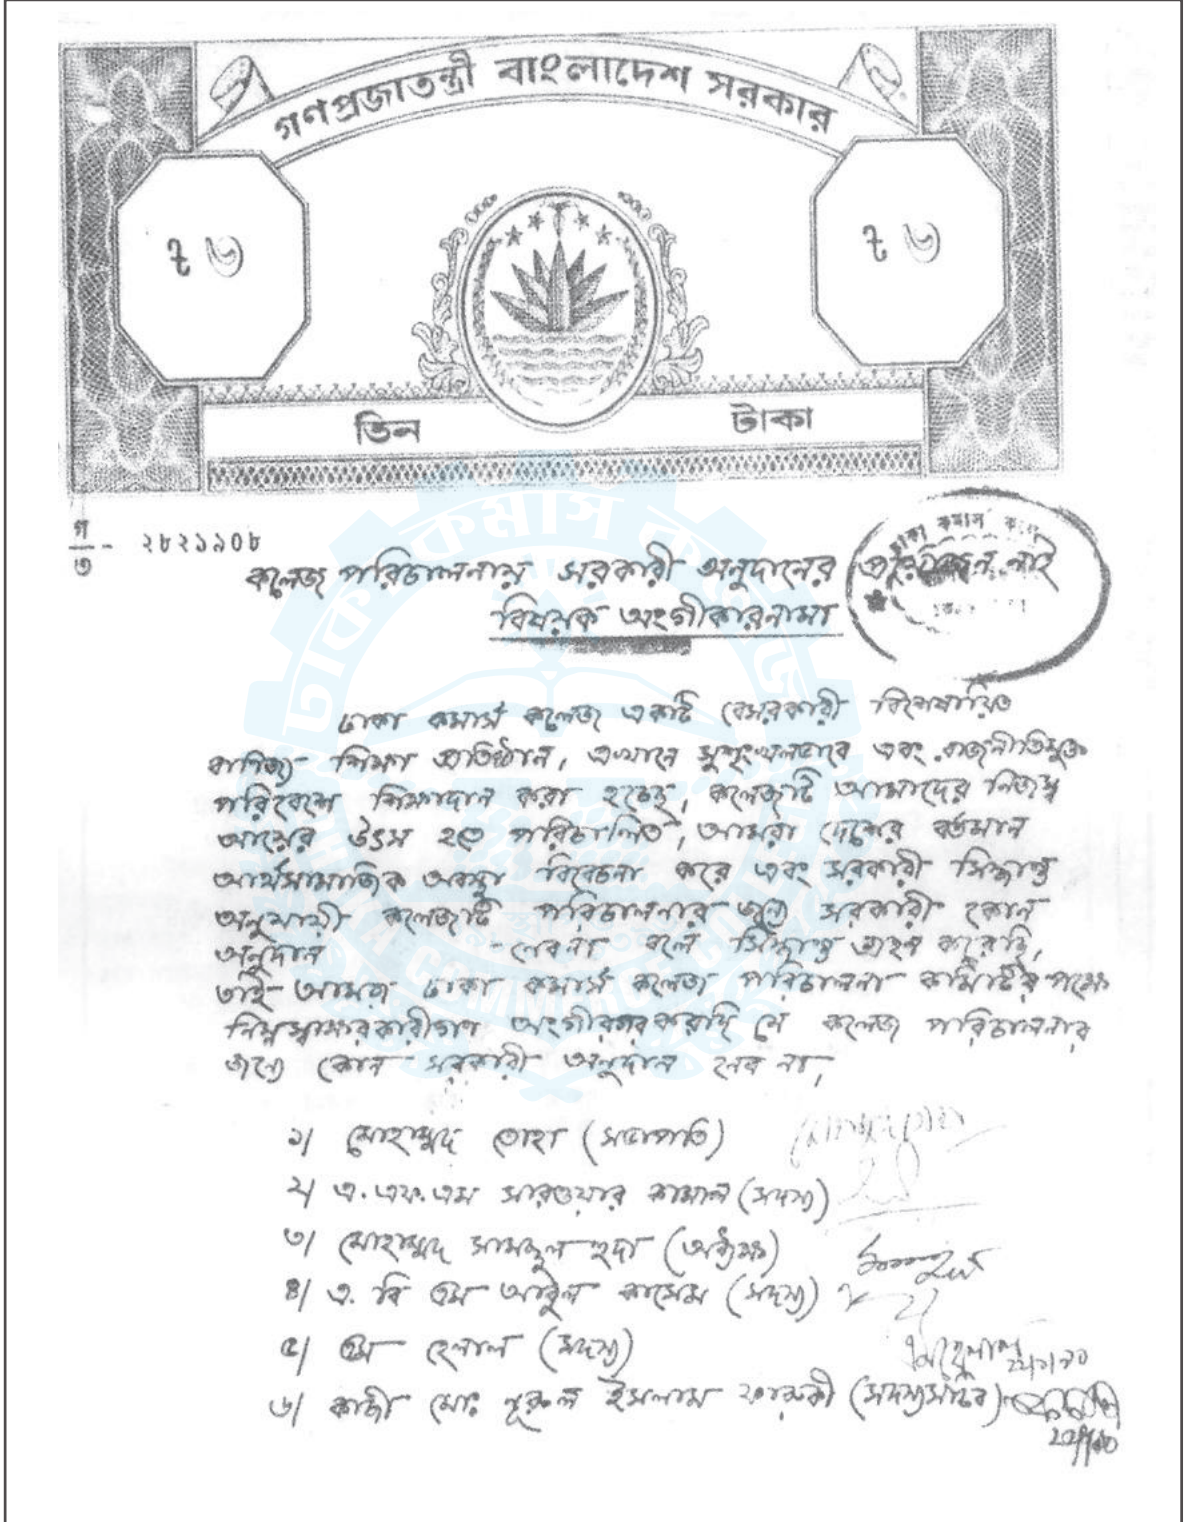 গণপ্রজাতন্ত্রী বাংলাদেশ সরকার
৳ ৩
৳ ৩
তিন
টাকা
গ
৩ - ২৮২১৯০৮
কলেজ পরিচালনায় সরকারী অনুদানের প্রয়োজন নাই
বিষয়ক অংগীকারনামা
ঢাকা কমার্স কলেজ একটি বেসরকারী বিশেষায়িত
বাণিজ্য শিক্ষা প্রতিষ্ঠান, এখানে সুশৃংখলভাবে এবং রাজনীতিমুক্ত
পরিবেশে শিক্ষাদান করা হচ্ছে, কলেজটি আমাদের নিজস্ব
আয়ের উৎস হতে পরিচালিত, আমরা দেশের বর্তমান
আর্থসামাজিক অবস্থা বিবেচনা করে এবং সরকারী সিদ্ধান্ত
অনুযায়ী কলেজটি পরিচালনার জন্যে সরকারী কোন
অনুদান নেবনা বলে সিদ্ধান্ত গ্রহণ করেছি,
তাই আমরা ঢাকা কমার্স কলেজ পরিচালনা কমিটির পক্ষে
নিম্নস্বাক্ষরকারীগণ অংগীকার করছি যে কলেজ পরিচালনার
জন্যে কোন সরকারী অনুদান নেব না,
১/ মোহাম্মদ তোহা (সভাপতি)
২/ এ.এফ.এম সারওয়ার কামাল (সদস্য)
৩/ মোহাম্মদ সামছুল হুদা (অধ্যক্ষ)
৪/ এ. বি এম আবুল কাসেম (সদস্য)
৫/ এম হেলাল (সদস্য)
৬/ কাজী মোঃ নূরুল ইসলাম ফারুকী (সদস্যসচিব)
ঢাকা কমার্স কলেজ
DHAKA COMMERCE COLLEGE